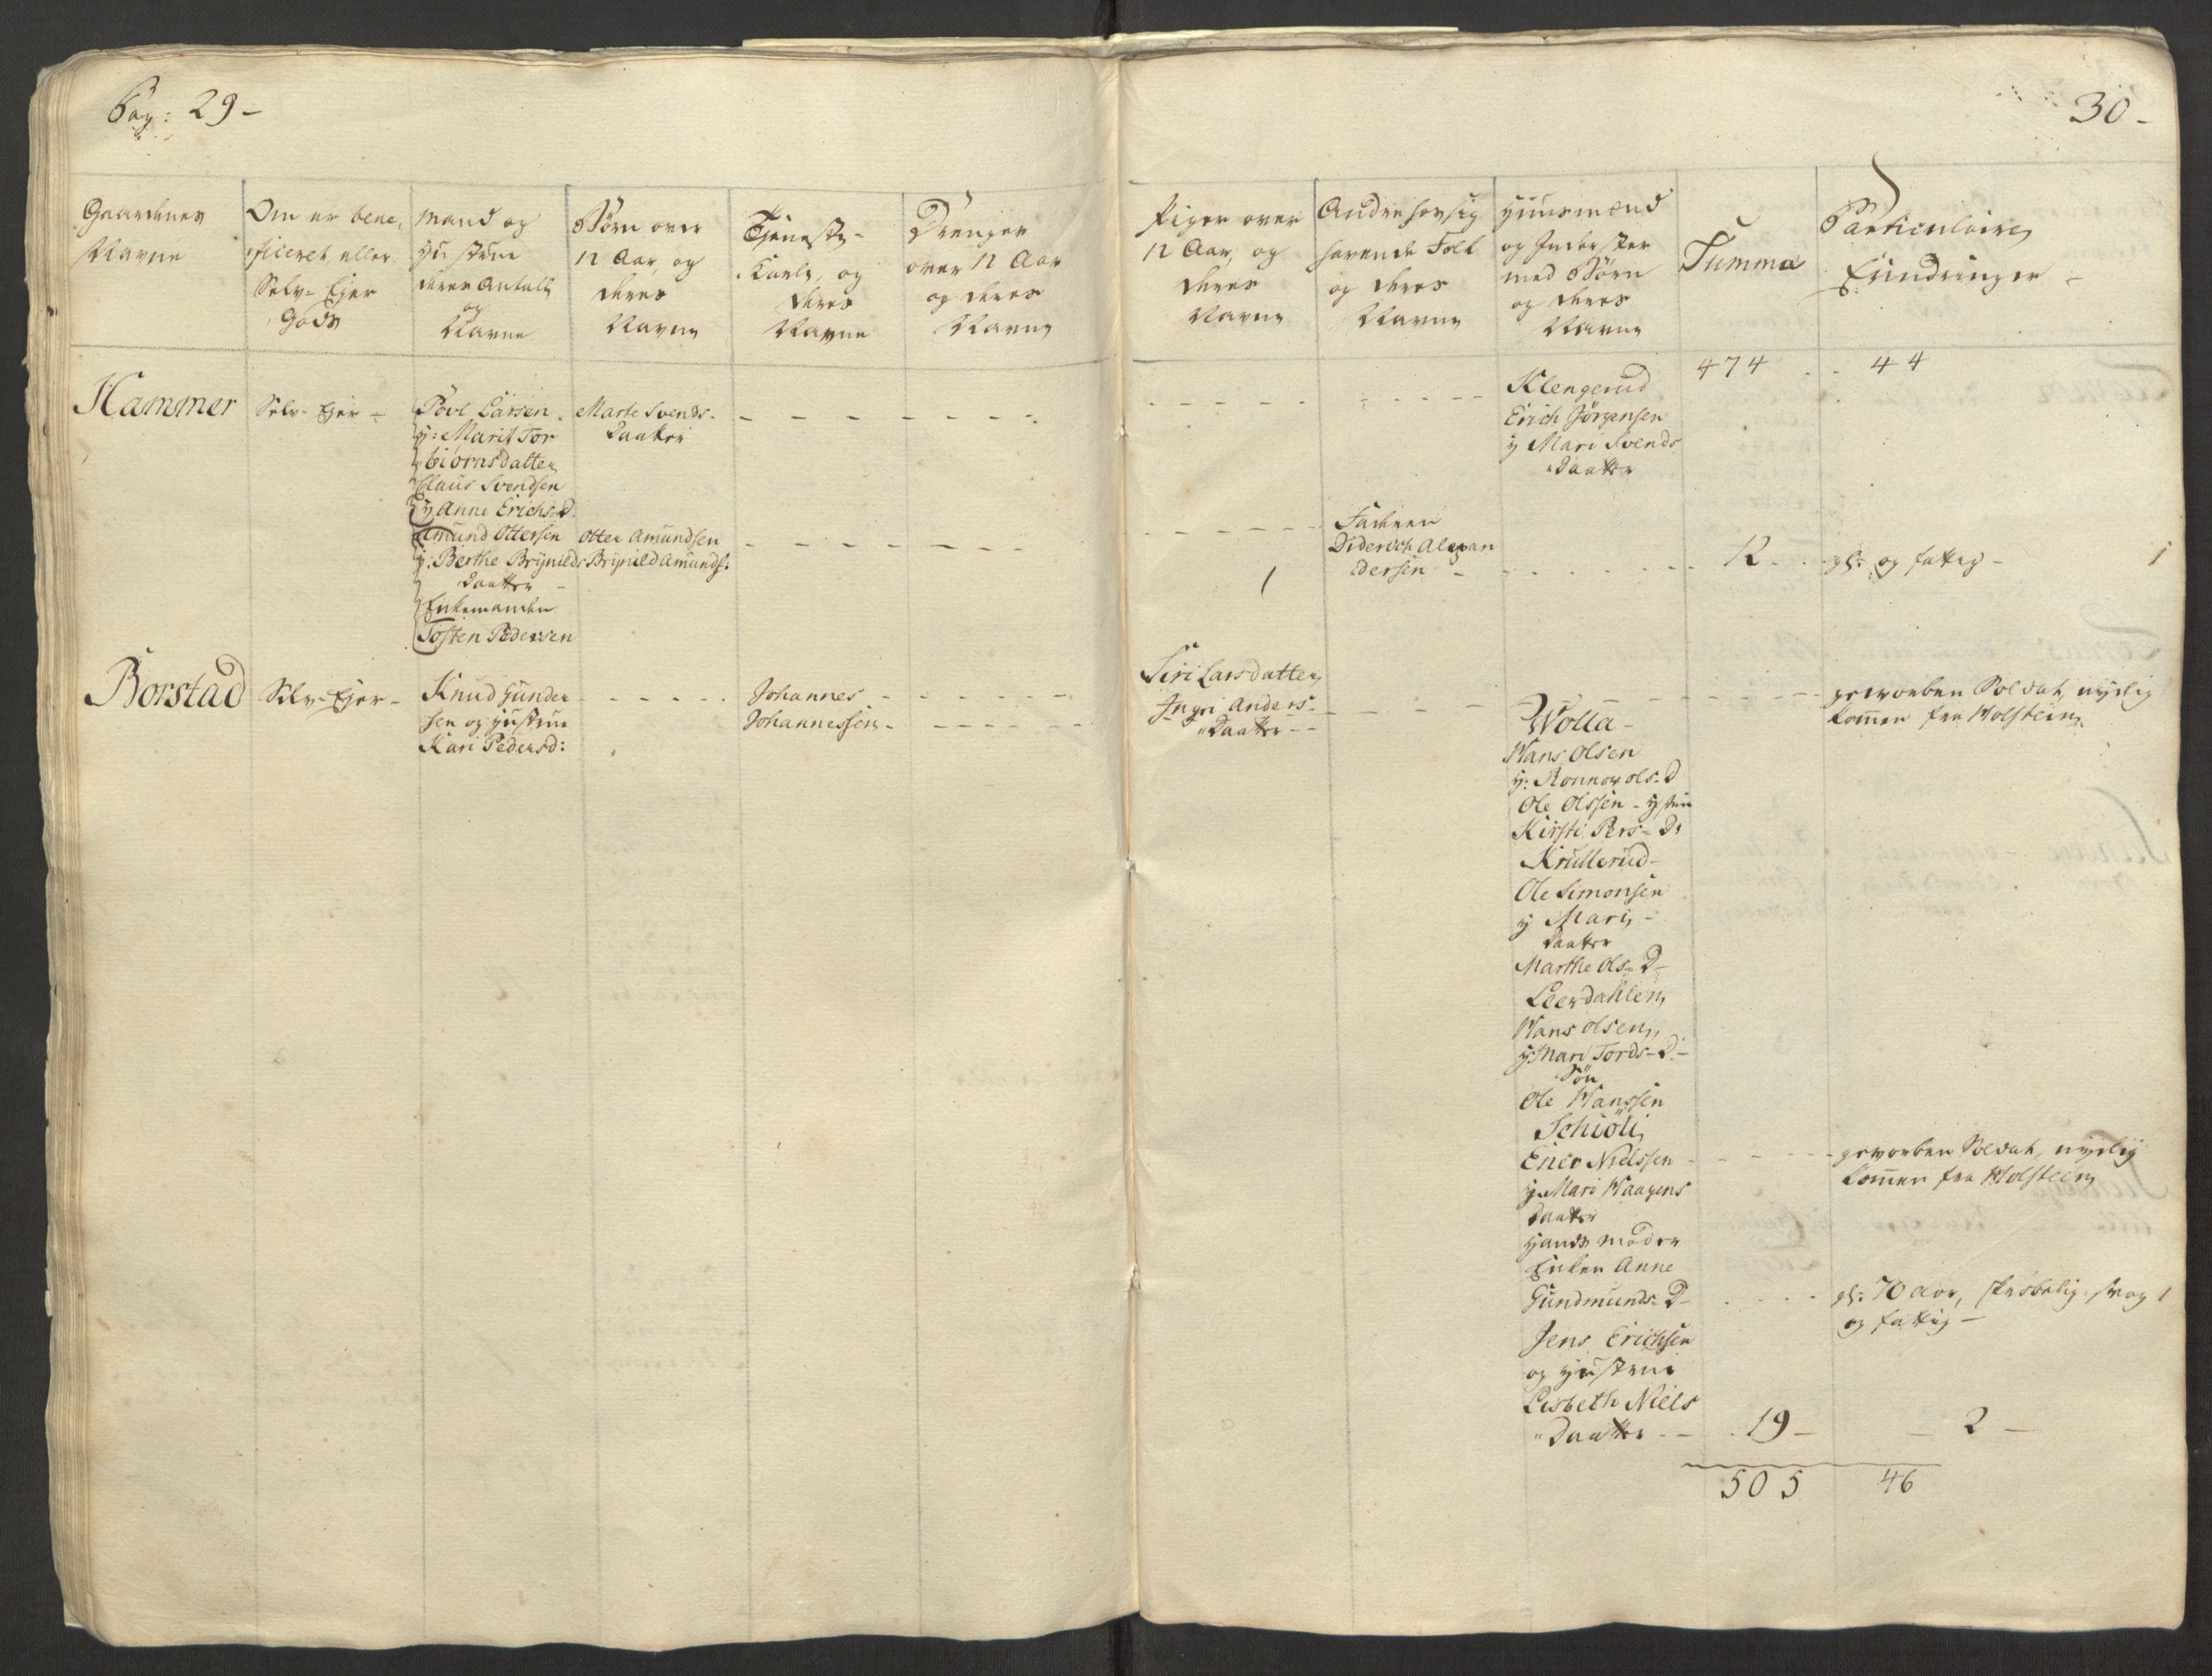 Pag: 29-
Gaardenes
Navne
Om er bene,
ficeret eller
Selv-Ejer
Gods
Mand og
Hustrue
deres Antall
og
Navne
Børn over
12 Aar, og
deres
Navne
Tjeneste-
Karle, og
deres
Navne
Drenger
over 12 Aar
og deres
Navne
Hammer
Selv-Ejer -
Povl Larsen
H: Marit Tor
biørnsdatter
Claus Svendsen
H Anne Erichs-D.
Amund Ottersen
H: Berthe Brynilds
Daatter -
Enkemanden
Tosten Pedersen
Marte Svends-
Daatter
Otter Amundsen
Brynild Amunds:
Borstad
Selv-Ejer-
Knud Gunder
sen og Hustrue
Kari Pedersd:
Johannes
Johannessen-
30-
Piger over
12 Aar, og
deres
Navne
Andre hos sig
havende Folk
og deres
Navne
Huusmænd
og Inderster
med Børn
og deres
Navne
Summa
Particulaire
Erindringer -
474 - - 44
Klengerud
Erich Jörgensen
H Mari Svends
Daatter
Faderen
Diderich Alexan
dersen -
1
12 - - gl: og fattig - 1
Siri Larsdatter
Ingri Anders-
"Daatter--
Wolla-
Hans Olsen
H: Ronnow Ols-D
Ole Olssen - Hstru
Kirsti Pers-D:
Krullerud-
Ole Simonsen
H Mari,-
Daatter
Marthe Ols-D-
Leerdahlen,
Hans Olsen,
H: Mari Tords-D-
Søn
Ole Hanssen
Schiöli,
Ener Nielssen
H. Mari Haagens
Daatter
Hands Moder
Enken Anne
Gundmunds-D-
Jens Erichsen
og Hustrue
Lisbeth Niels
"Daatter - -
gevorben Soldat, nyelig
kommen fra Holstein,
gevorben Soldat, nyelig
kommen fra Holstein,
gl: 70 Aar, skrøbelig, svag 1
og fattig-
19- - 2 -
505 46